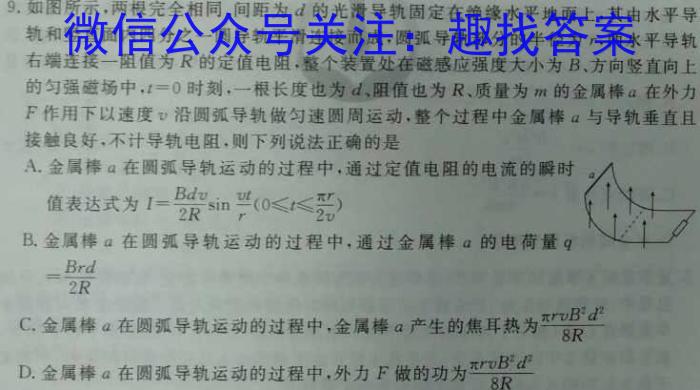 9. 如图所示,两根完全相同、间距为 d 的光滑导轨固定在绝缘水平地面上,其由水平导
微信公众号关注:趣找答案
轨和
右端连接一阻值为 R 的定值电阻,整个装置处在磁感应强度大小为 B、方向竖直向上
的匀强磁场中,t=0 时刻,一根长度也为 d、阻值也为 R、质量为 m 的金属棒 a 在外力
F 作用下以速度 v 沿圆弧导轨做匀速圆周运动,整个过程中金属棒 a 与导轨垂直且
接触良好,不计导轨电阻,则下列说法正确的是
A. 金属棒 a 在圆弧导轨运动的过程中,通过定值电阻的电流的瞬时
值表达式为 I=Bdv/2R sin vt/r (0≤t≤πr/2v)
a
B. 金属棒 a 在圆弧导轨运动的过程中,通过金属棒 a 的电荷量 q
=Brd/2R
C. 金属棒 a 在圆弧导轨运动的过程中,金属棒 a 产生的焦耳热为 πrvB²d²/8R
D. 金属棒 a 在圆弧导轨运动的过程中,外力 F 做的功为 πrvB²d²/8R